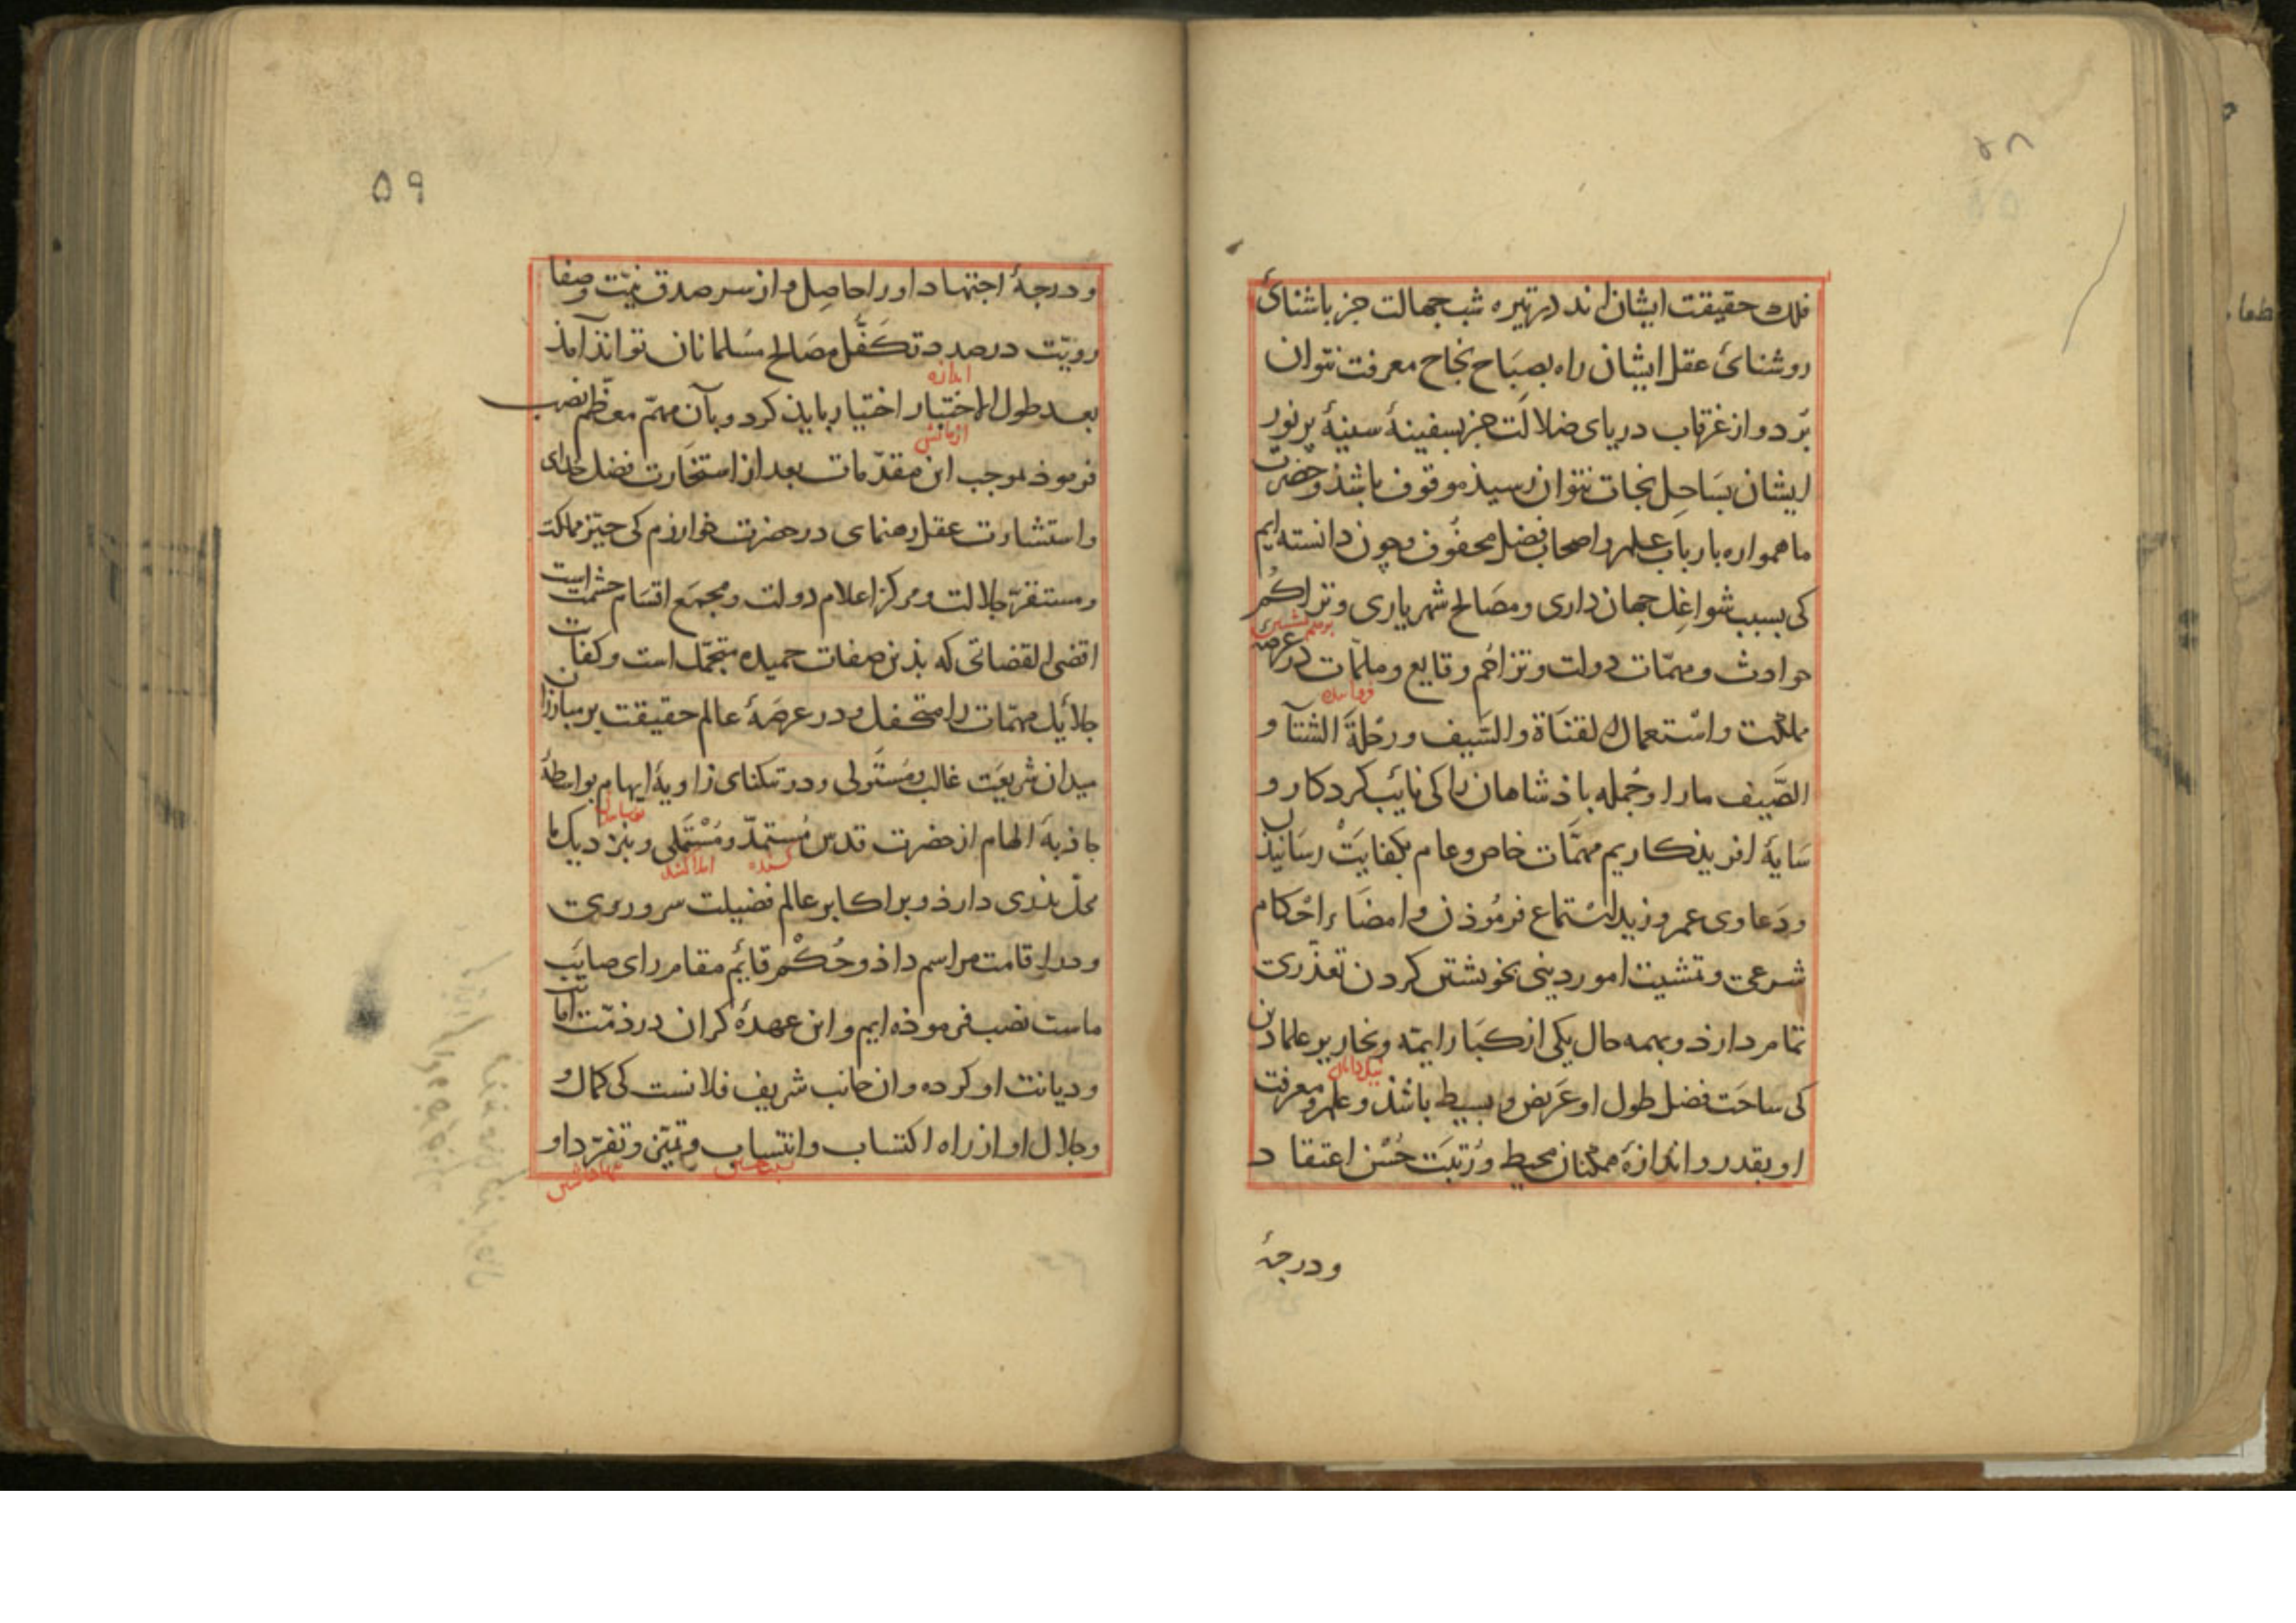 ۵۸
فلك حقیقت ایشان اند در تیره شب جهالت جز باشنائ
روشنائ عقل ایشان راه بصباح نجاح معرفت نتوان
برد و از غرقاب دریای ضلالت جز بسفینهٔ سینهٔ پرنور
ایشان بساحل نجات نتوان رسیذ موقوف باشذ و حضرت
ما همواره بارباب علم و اصحاب فضل محفوف و چون دانسته ایم
کی بسبب شواغل جهان داری و مصالح شهریاری و تراکم
حوادث و مهمّات دولت و تزاحُم وقایع و ملمّات در عرصه
مملکت و استعمال القناة والسَّیف و رحلةَ الشتآ و
الصَّیف ما را و جُمله باذشاهان را کی نائب کردکار و
سایهٔ افریذکاریم مهمّات خاص و عام بکفایت رسانیذن
و دعاوی عمرو و زید استماع فرمُوذن و امضاء احکام
شرعی و تمشیت امور دینی بخویشتن کردن تعذّری
تمام دارذ و بهمه حال یکی از کبار ایمّه و نحاریر علماء دین
کی ساحَت فضل طول او عَریض و بسیط باشذ و علم و معرفت
او بقدر و اندازهٔ ممکنان محیط و رُتبَت حُسْن اعتقاد
و درجهٔ
۵۹
و درجهٔ اجتهاد او را حاصِل و از سر صدق نیّت و صفا
رویّت در صدد تکفّل مصَالح مسَلمانان تواند آمذ
اندازه
بعد طول الاختبار اختیار بایذ کرد و بآن مهمّ معظّم نصب
ازمایش
فرموذ بموجب این مقدّمات بعد از استخارت فضل خدای
و استشارت عقل رهنمای در حضرت خوارزم کی حیّز مملکت
و مستقرّ جلالت و مرکز اعلام دولت و مجمَع اقسَام حشمت است
اقضی القضاتی که بذین صفات حمیده متجمّل است و کفات
جلائل مهمّات را متحفل و در عرصَهٔ عالم حقیقت بر مبارزان
میدان شریعَت غالب و مستَولی و در تنکنای زاویهٔ ابهام بواسطهٔ
جاذبهٔ الهام از حضرت قدس مُستمدّ و مُسْتَملی و بنزدیک ما
محلّ بذری دارذ و بر اکابر عالم فضیلت سروری
و در اقامت مراسم داذ و حُکْم قائم مقام رای صایب
ماست نصب فرموذه ایم و این عهدهٔ کران در ذمّت امانت
و دیانت او کرده و ان جانب شریف فلانست کی کمال
و جلال او از راه اکتساب و انتساب و تمیّن و تفرّد او